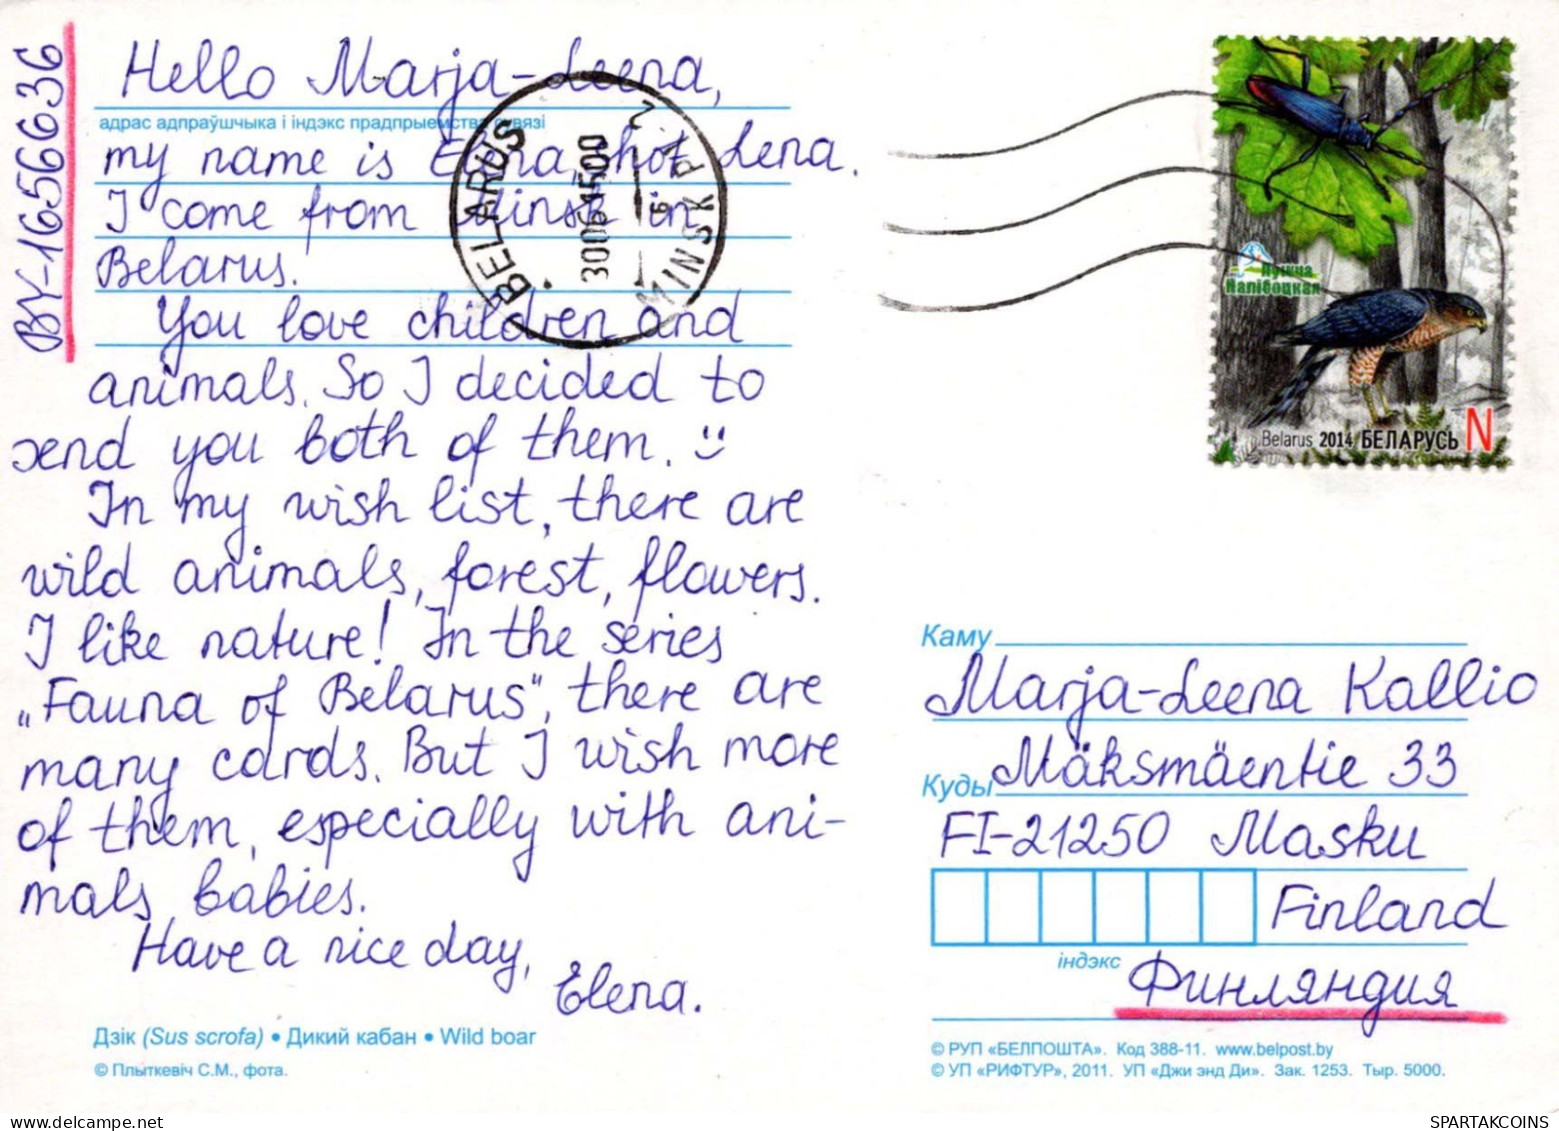 BY-1656636
Hello Marja-Leena,
адрас адпраўшчыка і індэкс прадпрыемства сувязі
my name is Elena, shot Lena.
I come from Minsk in
Belarus.
You love children and
animals. So I decided to
send you both of them. :)
In my wish list, there are
wild animals, forest, flowers.
I like nature! In the series
„Fauna of Belarus", there are
many cards. But I wish more
of them, especially with ani-
mals babies.
Have a nice day,
Elena.
Дзік (Sus scrofa) • Дикий кабан • Wild boar
© Плыткевіч С.М., фота.
BELARUS
300614500
MINSK PI 2
Пушча
Налібоцкая
Belarus 2014 БЕЛАРУСЬ N
Каму
Marja-Leena Kallio
Куды Mäksmäentie 33
FI-21250 Masku
Finland
індэкс
Финляндия
© РУП «БЕЛПОШТА». Код 388-11. www.belpost.by
© УП «РИФТУР», 2011. УП «Джи энд Ди». Зак. 1253. Тыр. 5000.
SPARTAKCOINS